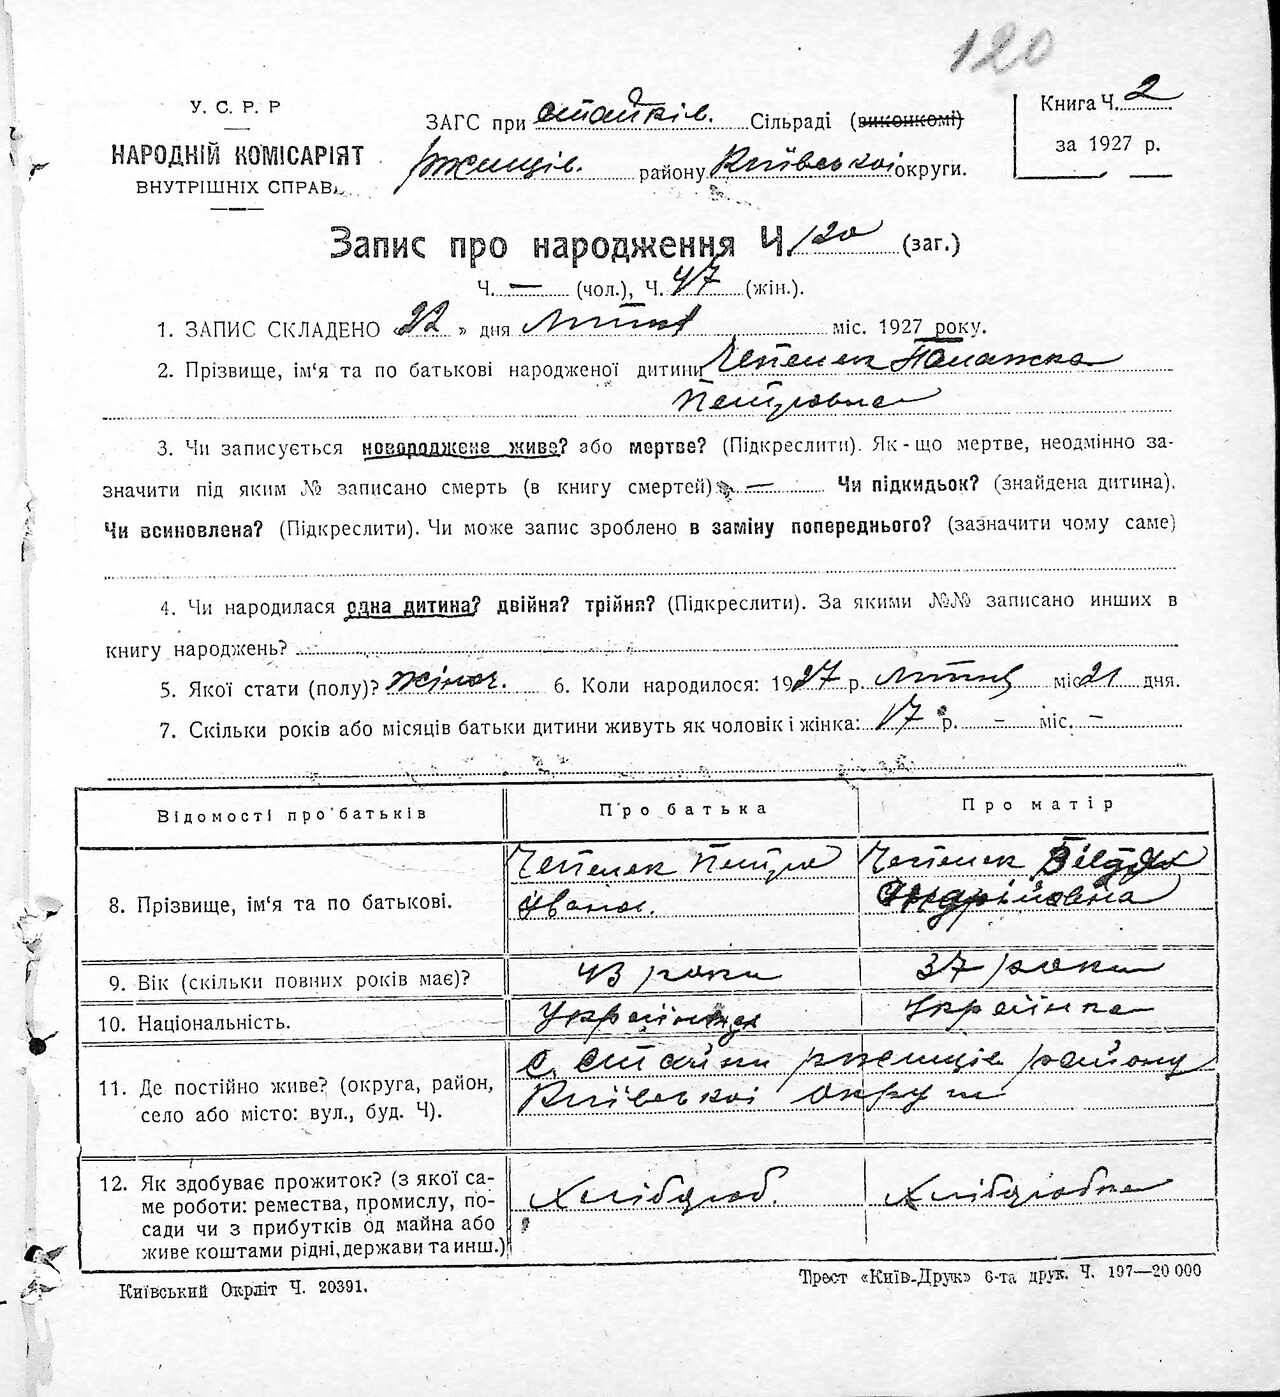 120
У. С. Р. Р
НАРОДНІЙ КОМІСАРІЯТ
ВНУТРІШНІХ СПРАВ
ЗАГС при стайків. Сільраді (виконкомі)
ржищів. району Київської округи.
Книга Ч. 2
за 1927 р.
Запис про народження Ч. 120 (заг.)
Ч. — (чол.), Ч. 47 (жін.).
1. ЗАПИС СКЛАДЕНО 22 » дня міс. 1927 року.
2. Прізвище, ім‘я та по батькові народженої дитини Чепелек Палажка
Петровна
3. Чи записується новороджене живе? або мертве? (Підкреслити). Як-що мертве, неодмінно за-
значити під яким № записано смерть (в книгу смертей) — Чи підкидьок? (знайдена дитина).
Чи всиновлена? (Підкреслити). Чи може запис зроблено в заміну попереднього? (зазначити чому саме)
4. Чи народилася одна дитина? двійня? трійня? (Підкреслити). За якими №№ записано инших в
книгу народжень?
5. Якої стати (полу)? жіноч. 6. Коли народилося: 1927 р. міс. 21 дня.
7. Скільки років або місяців батьки дитини живуть як чоловік і жінка: 17 р. – міс. –
Відомості про батьків Про батька Про матір
8. Прізвище, ім‘я та по батькові. Чепелек Петро Чепелек
Іванов. Андріївна
9. Вік (скільки повних років має)? 43 роки 37 роки
10. Національність. Українець Українка
11. Де постійно живе? (округа, район,
село або місто: вул., буд. Ч).
с. Стайки ржищів району
Київської округи
12. Як здобуває прожиток? (з якої са-
ме роботи: ремества, промислу, по-
сади чи з прибутків од майна або
живе коштами рідні, держави та инш.)
Хлібороб. Хліборобка
Київський Окрліт Ч. 20391.
Трест «Київ-Друк» 6-та друк. Ч. 197—20 000